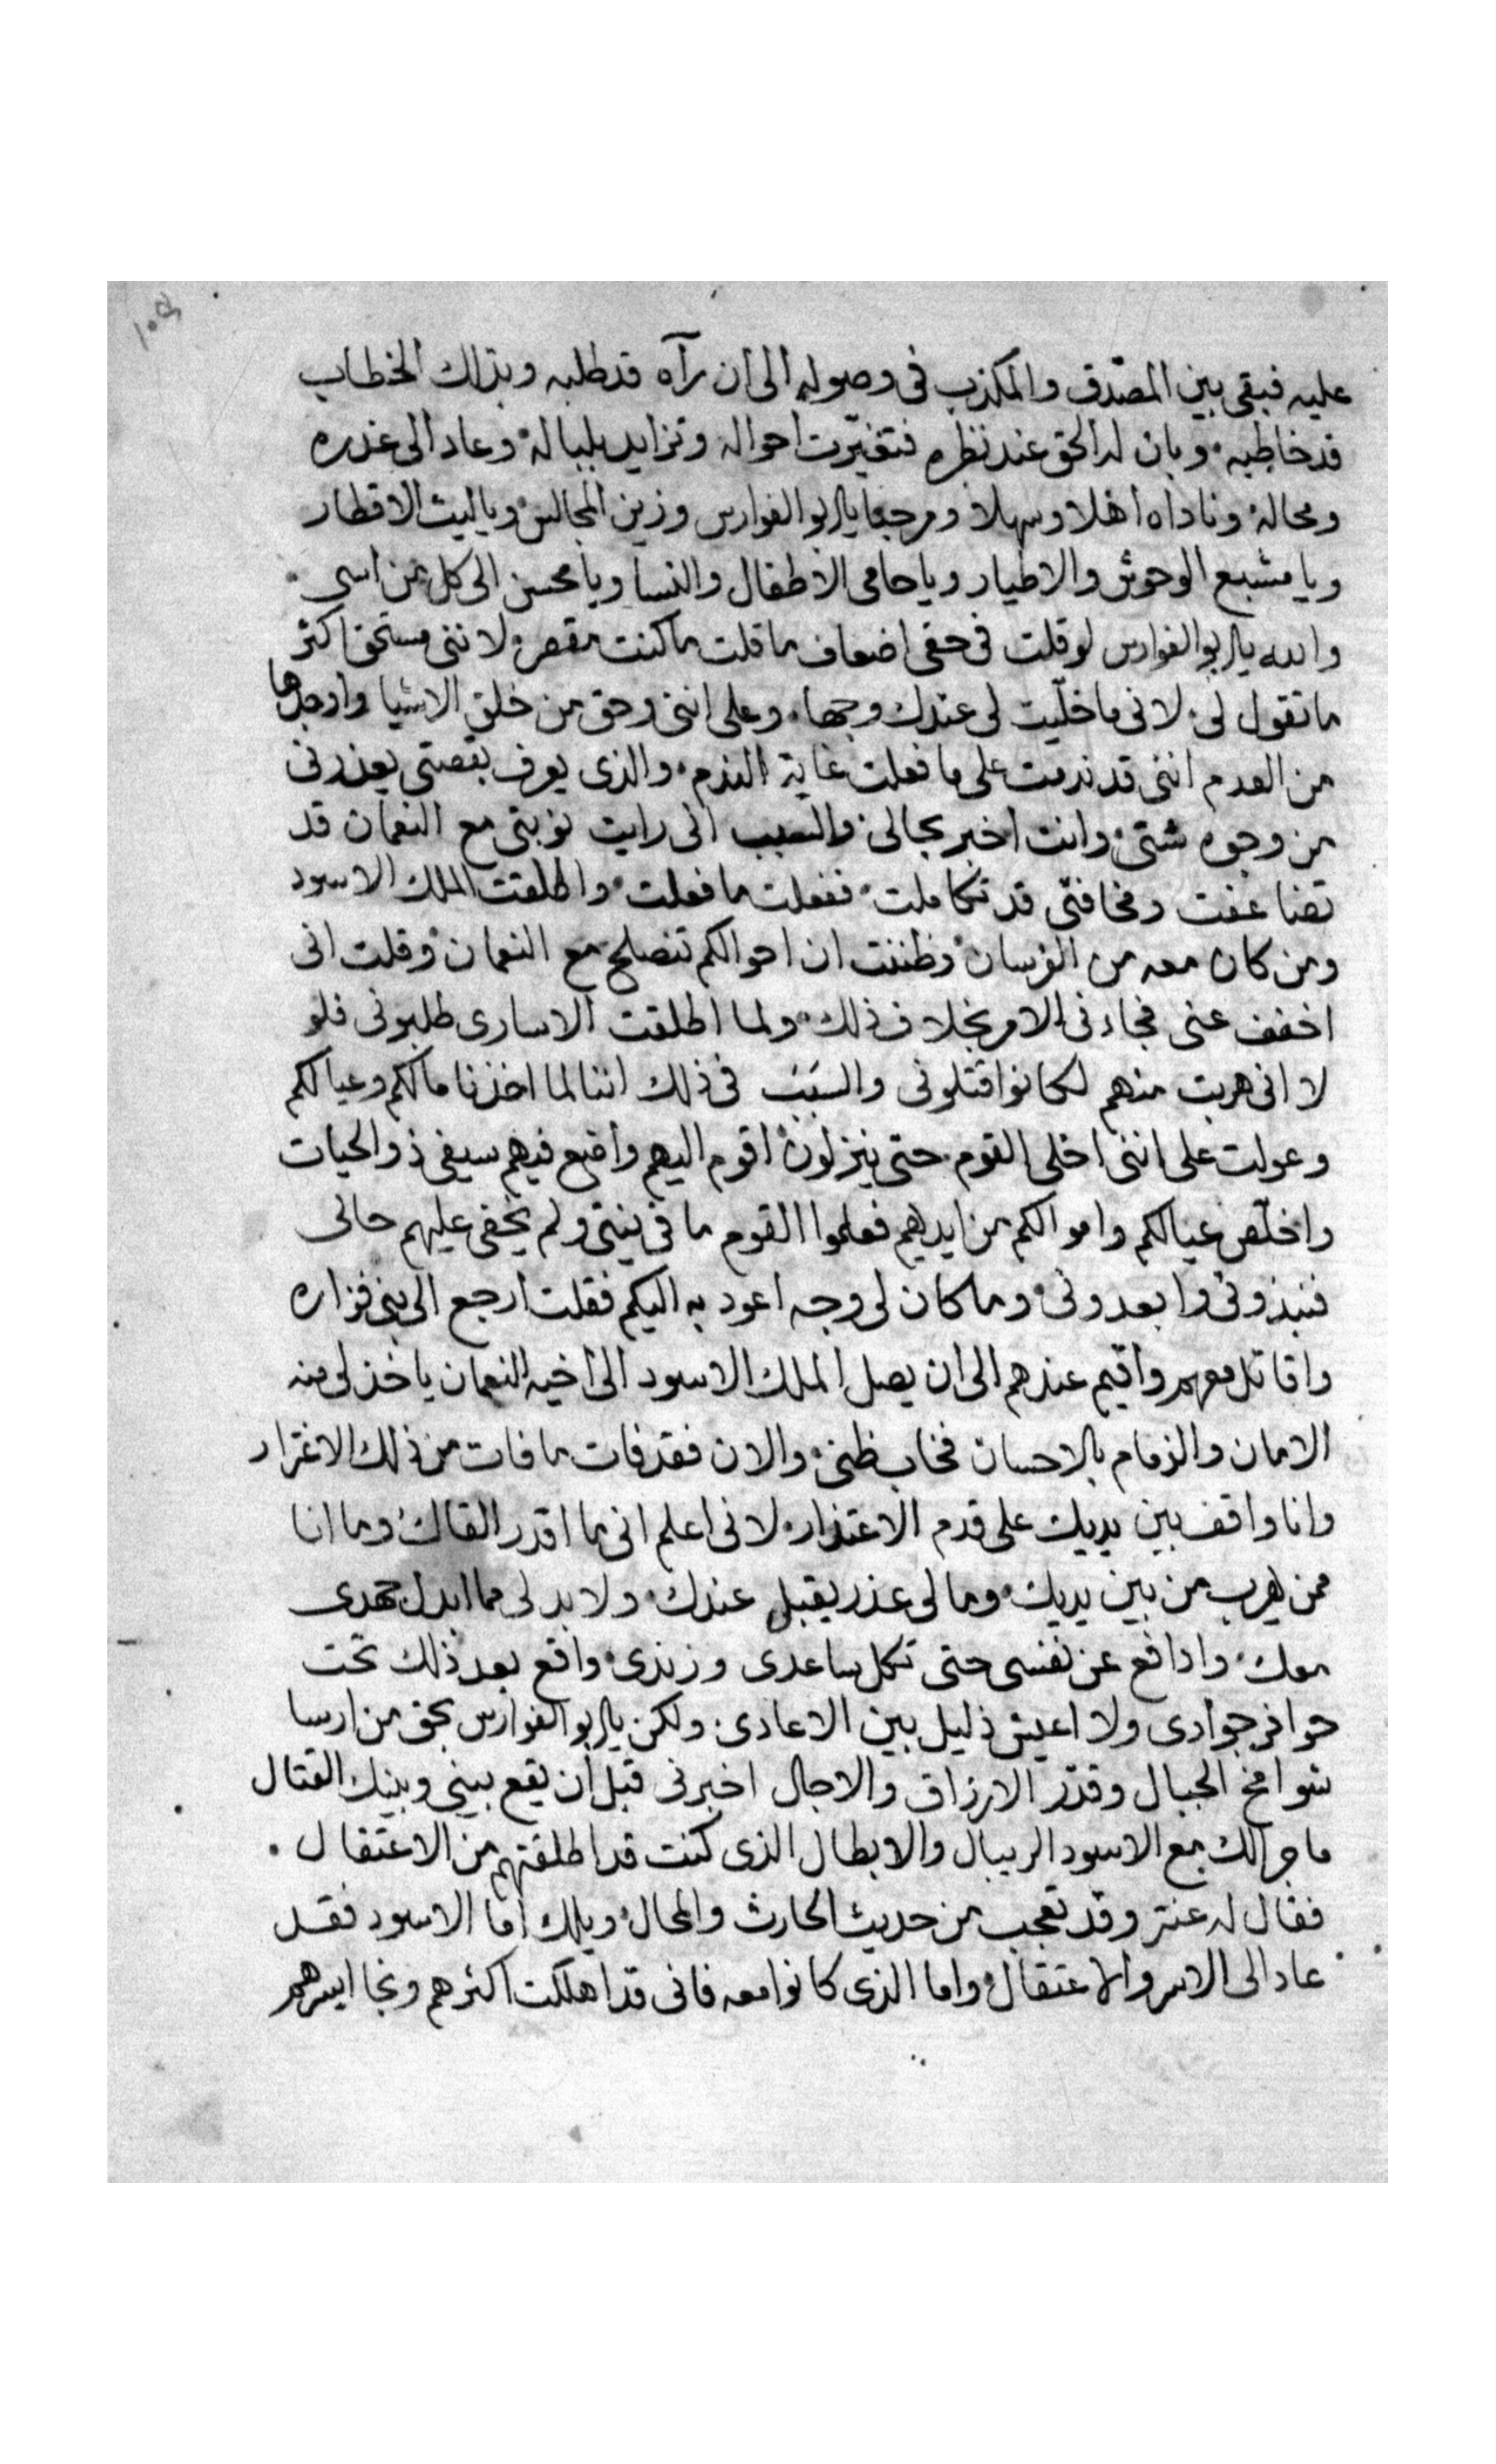 عليه فبقى بين المصّدق والمكذب فى وصوله الى ان رآه قد طلبه وبذلك الخطاب
قد خاطبه وبان له الحق عند نظره فتغيّرت احواله وتزايد بلباله وعاد الى غدره
ومحاله وناداه اهلا وسهلا ومرحبا يابو الفوارس وزين المجالس ويا ليث الاقطار
ويا مشبع الوحوش والاطيار ويا حامى الاطفال والنسا ويا محسن الى كل من اسى
والله يابو الفوارس لو قلت فى حقى اضعاف ما قلت ما كنت مقصر لاننى مستحق اكثر
ما تقول لى لانى ما خلّيت لى عندك وجها وعلى اننى وحق من خلق الاشيا واوجدها
من العدم اننى قد ندمت على ما فعلت غاية الندم والذى يعرف بقصتى يعذرنى
من وجوه شتى وانت اخبر بحالى والسبب انى رايت نوبتى مع النعمان قد
تضاعفت ومخافتى قد تكاملت ففعلت ما فعلت واطلقت الملك الاسود
ومن كان معه من الفرسان وظننت ان احوالكم تنصلح مع النعمان وقلت انى
اخفف عنى فجاءنى الامر بخلاف ذلك ولما اطلقت الاسارى طلبونى فلو
لا انى هربت منهم لكانوا قتلونى والسبب فى ذلك اننا لما اخذنا مالكم وعيالكم
وعولت على اننى اخلى القوم حتى ينزلون اقوم اليهم واضع فيهم سيفى ذو الحيات
واخلّص عيالكم واموالكم من ايديهم فعلموا القوم ما فى نيتى ولم يخفى عليهم حالى
فنبذونى وابعدونى وما كان لى وجه اعود به اليكم فقلت ارجع الى بنى فزاره
واقاتل معهم واقيم عندهم الى ان يصل الملك الاسود الى اخيه النعمان ياخذ لى منه
الامان والزمام بالاحسان فخاب ظنى والان فقد فات ما فات من ذلك الاغترار
وانا واقف بين يديك على قدم الاعتذار لانى اعلم انى ما اقدر القاك وما انا
ممن يهرب من بين يديك وما لى عذر يقبل عندك ولا بد لى مما ابدل جهدى
معك وادافع عن نفسى حتى تكل ساعدى وزندى واقع بعد ذلك تحت
حوافر جوادى ولا اعيش ذليل بين الاعادى ولكن يابو الفوارس بحق من ارسا
شوامخ الجبال وقدّر الارزاق والاجال اخبرنى قبل ان يقع بينى وبينك القتال
ما جرا لك مع الاسود الريبال والابطال الذى كنت قد اطلقتهم من الاعتقال
فقال له عنتر وقد تعجب من حديث الحارث والمحال ويلك اما الاسود فقد
عاد الى الاسر والاعتقال واما الذى كانوا معه فانى قد اهلكت اكثرهم ونجا ايسرهم